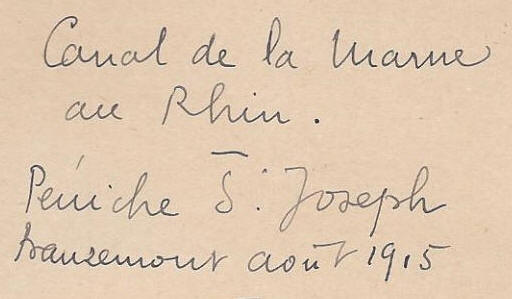 Canal de la Marne
au Rhin.
Péniche S. Joseph
Bauzemont août 1915